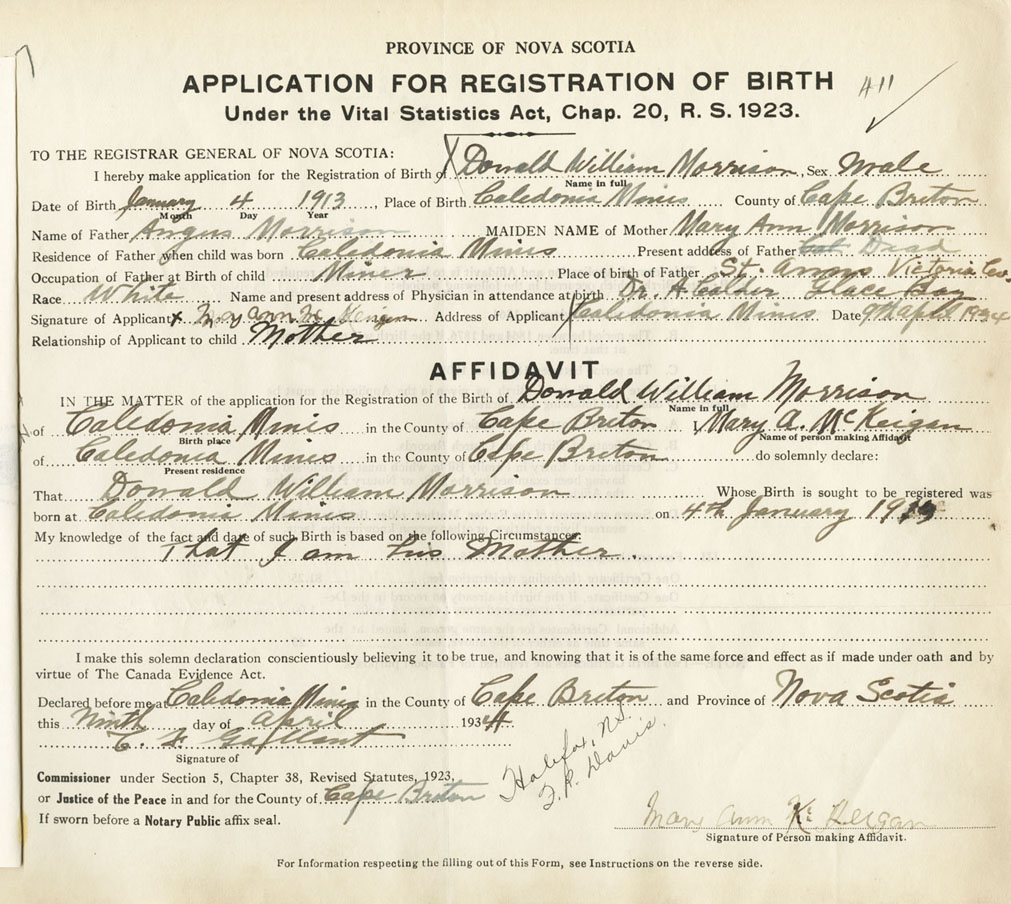 PROVINCE OF NOVA SCOTIA
APPLICATION FOR REGISTRATION OF BIRTH
A11
Under the Vital Statistics Act, Chap. 20, R. S. 1923.
TO THE REGISTRAR GENERAL OF NOVA SCOTIA:
I hereby make application for the Registration of Birth of Donald William Morrison, Sex Male
Name in full
Date of Birth January 4 1913, Place of Birth Caledonia Mines County of Cape Breton
Month Day Year
Name of Father Angus Morrison MAIDEN NAME of Mother Mary Ann Morrison
Residence of Father when child was born Caledonia Mines Present address of Father Dead
Occupation of Father at Birth of child Miner Place of birth of Father St. Anns Victoria Co.
Race White Name and present address of Physician in attendance at birth Dr. A Calder Glace Bay
Signature of Applicant x Mary ann Address of Applicant Caledonia Mines Date 9th April 1934
Relationship of Applicant to child Mother
AFFIDAVIT
IN THE MATTER of the application for the Registration of the Birth of Donald William Morrison
Name in full
of Caledonia Mines in the County of Cape Breton I, Mary A. McKeigan
Birth place Name of person making Affidavit
of Caledonia Mines in the County of Cape Breton do solemnly declare:
Present residence
That Donald William Morrison Whose Birth is sought to be registered was
born at Caledonia Mines on 4th January 1913
My knowledge of the fact and date of such Birth is based on the following Circumstances:
That I am his Mother.
I make this solemn declaration conscientiously believing it to be true, and knowing that it is of the same force and effect as if made under oath and by
virtue of The Canada Evidence Act.
Declared before me at Caledonia Mines in the County of Cape Breton and Province of Nova Scotia
this Ninth day of April 1934
C. F. Gallant
Signature of
Halifax, N.S.
F. R. Davis.
Commissioner under Section 5, Chapter 38, Revised Statutes, 1923,
or Justice of the Peace in and for the County of Cape Breton
If sworn before a Notary Public affix seal.
Mary Ann Mc Keigan
Signature of Person making Affidavit.
For Information respecting the filling out of this Form, see Instructions on the reverse side.